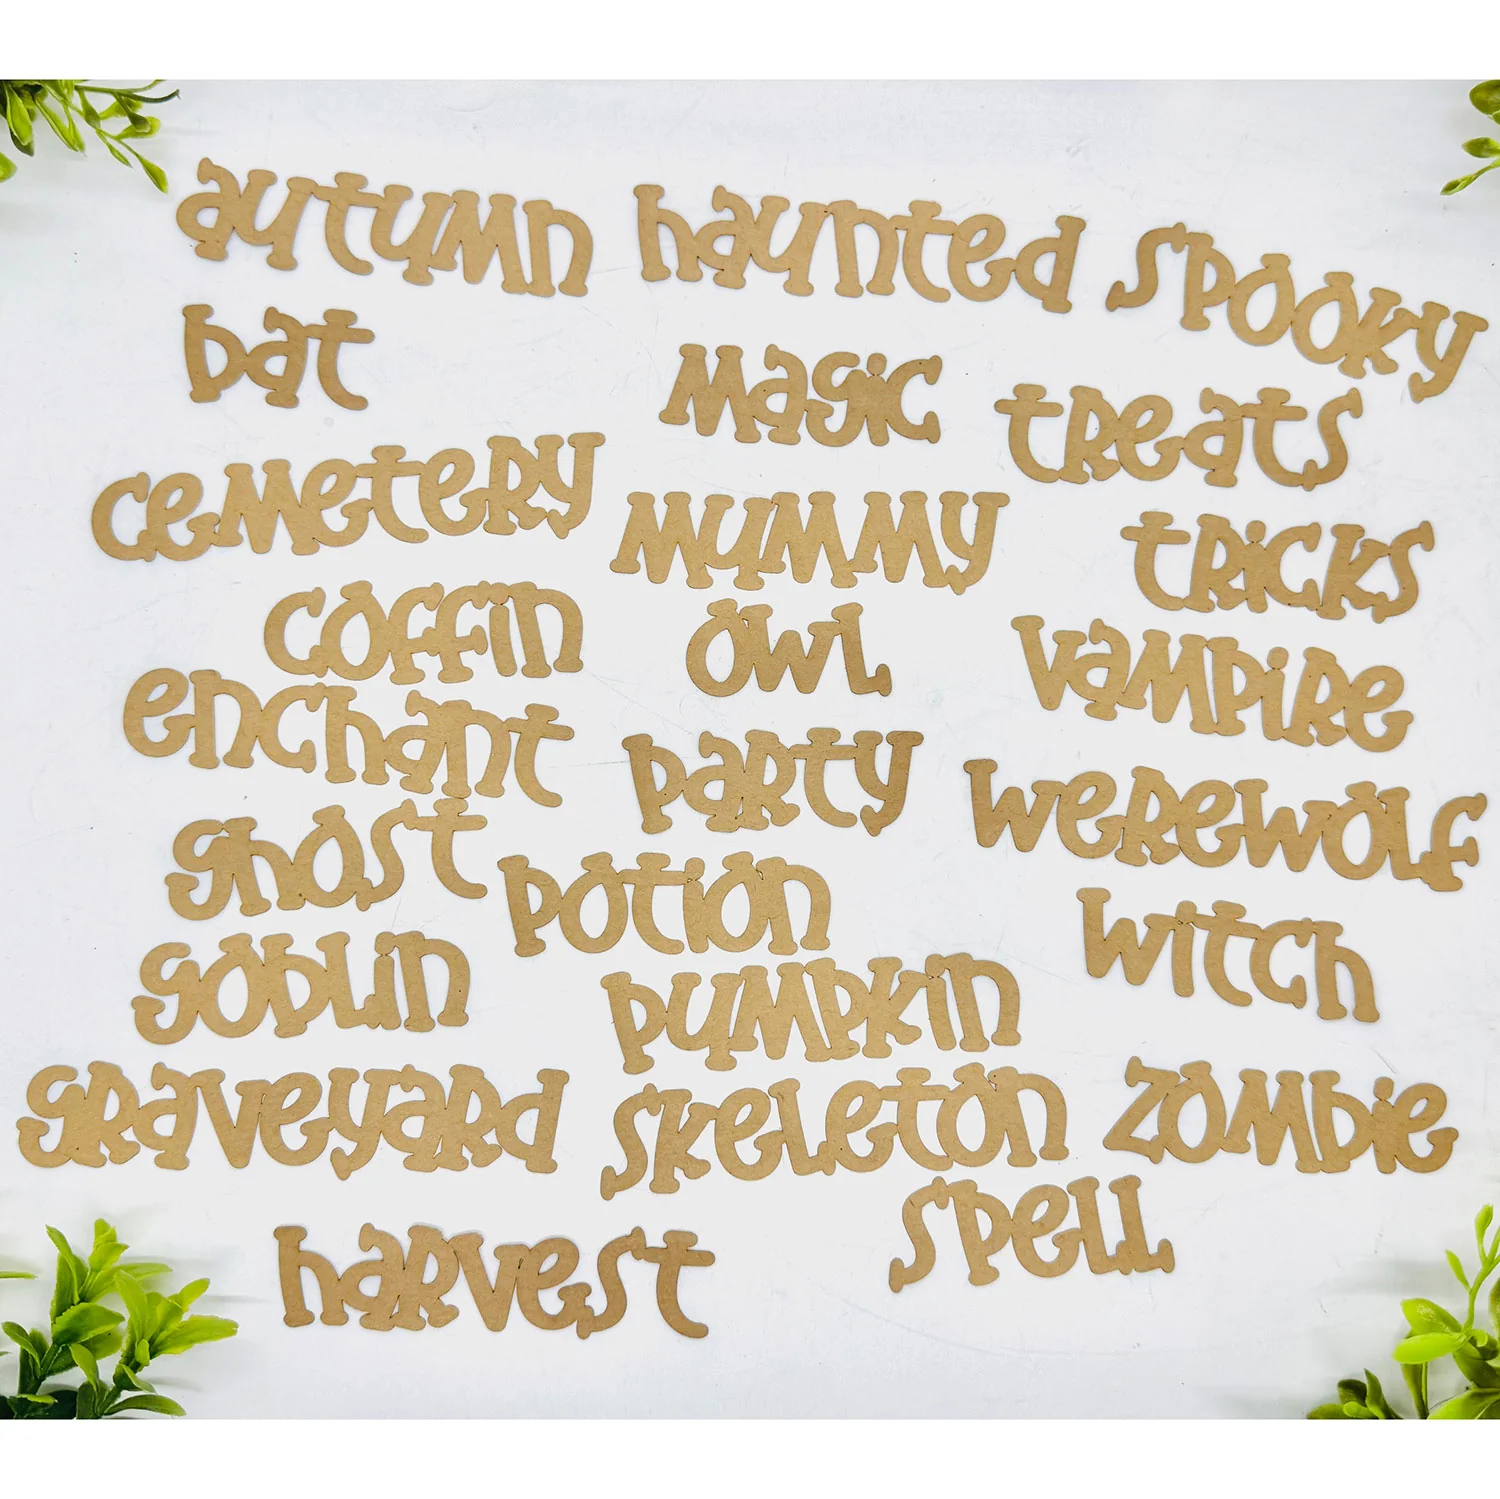 autumn haunted spooky
bat magic treats
cemetery mummy tricks
coffin owl vampire
enchant party werewolf
ghost potion witch
goblin pumpkin
graveyard skeleton zombie
harvest spell